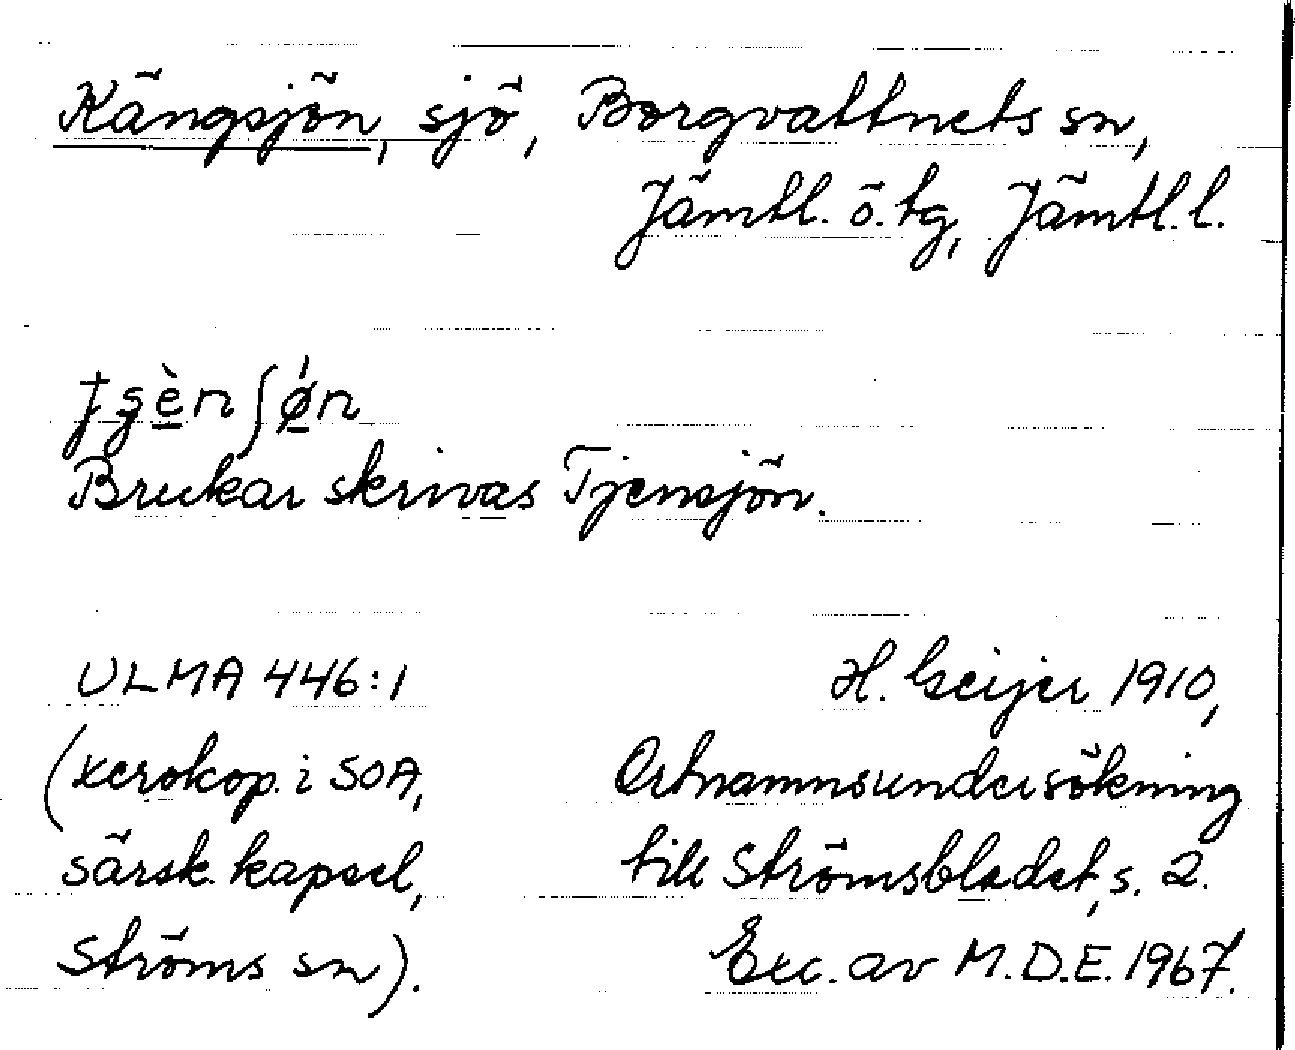 Kängsjön, sjö, Borgvattnets sn,
Jämtl. ö. tg, Jämtl. l.
Brukar skrivas Tjensjön.
ULMA 446:1
(xerokop. i SOA,
särsk. kapsel,
Ströms sn).
H. Geijer 1910,
Ortnamnsundersökning
till Strömsbladet, s. 2.
Exc. av M.D.E. 1967.